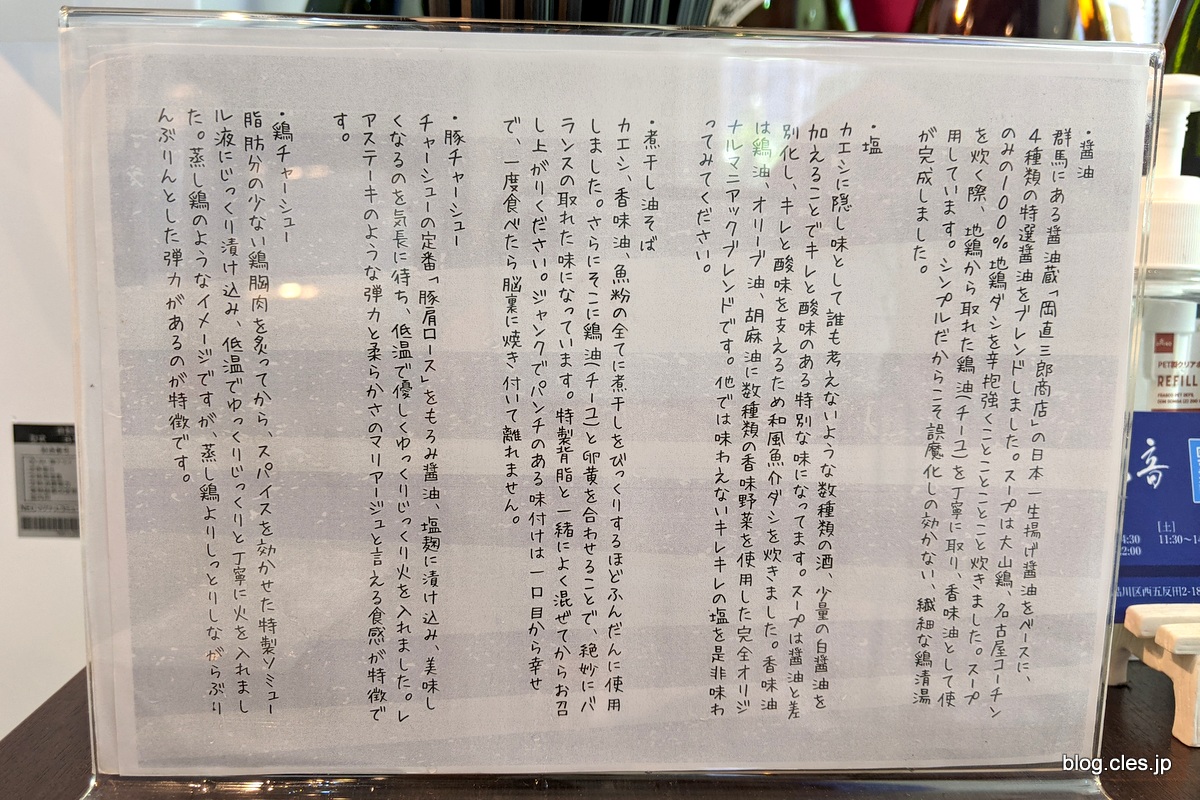 ・醤油
群馬にある醤油蔵「岡直三郎商店」の日本一生揚げ醤油をベースに、
4種類の特選醤油をブレンドしました。スープは大山鶏、名古屋コーチン
のみの100%地鶏ダシを辛抱強くことことことこと炊きました。スープ
を炊く際、地鶏から取れた鶏油(チーユ)を丁寧に取り、香味油として使
用しています。シンプルだからこそ誤魔化しの効かない、繊細な鶏清湯
が完成しました。
・塩
カエシに隠し味として誰も考えないような数種類の酒、少量の白醤油を
加えることでキレと酸味のある特別な味になってます。スープは醤油と差
別化し、キレと酸味を支えるため和風魚介ダシを炊きました。香味油
は鶏油、オリーブ油、胡麻油に数種類の香味野菜を使用した完全オリジ
ナルマニアックブレンドです。他では味わえないキレキレの塩を是非味わ
ってみてください。
・煮干し油そば
カエシ、香味油、魚粉の全てに煮干しをびっくりするほどふんだんに使用
しました。さらにそこに鶏油(チーユ)と卵黄を合わせることで、絶妙にバ
ランスの取れた味になっています。特製背脂と一緒によく混ぜてからお召
し上がりください。ジャンクでパンチのある味付けは一口目から幸せ
で、一度食べたら脳裏に焼き付いて離れません。
・豚チャーシュー
チャーシューの定番「豚肩ロース」をもろみ醤油、塩麹に漬け込み、美味し
くなるのを気長に待ち、低温で優しくゆっくりじっくり火を入れました。レ
アステーキのような弾力と柔らかさのマリアージュと言える食感が特徴で
す。
・鶏チャーシュー
脂肪分の少ない鶏胸肉を炙ってから、スパイスを効かせた特製ソミュー
ル液にじっくり漬け込み、低温でゆっくりじっくりと丁寧に火を入れまし
た。蒸し鶏のようなイメージですが、蒸し鶏よりしっとりしながらぷり
んぷりんとした弾力があるのが特徴です。
REFILL
音
[土]
11:30~14
4:30
2:00
品川区西五反田2-18
blog.cles.jp